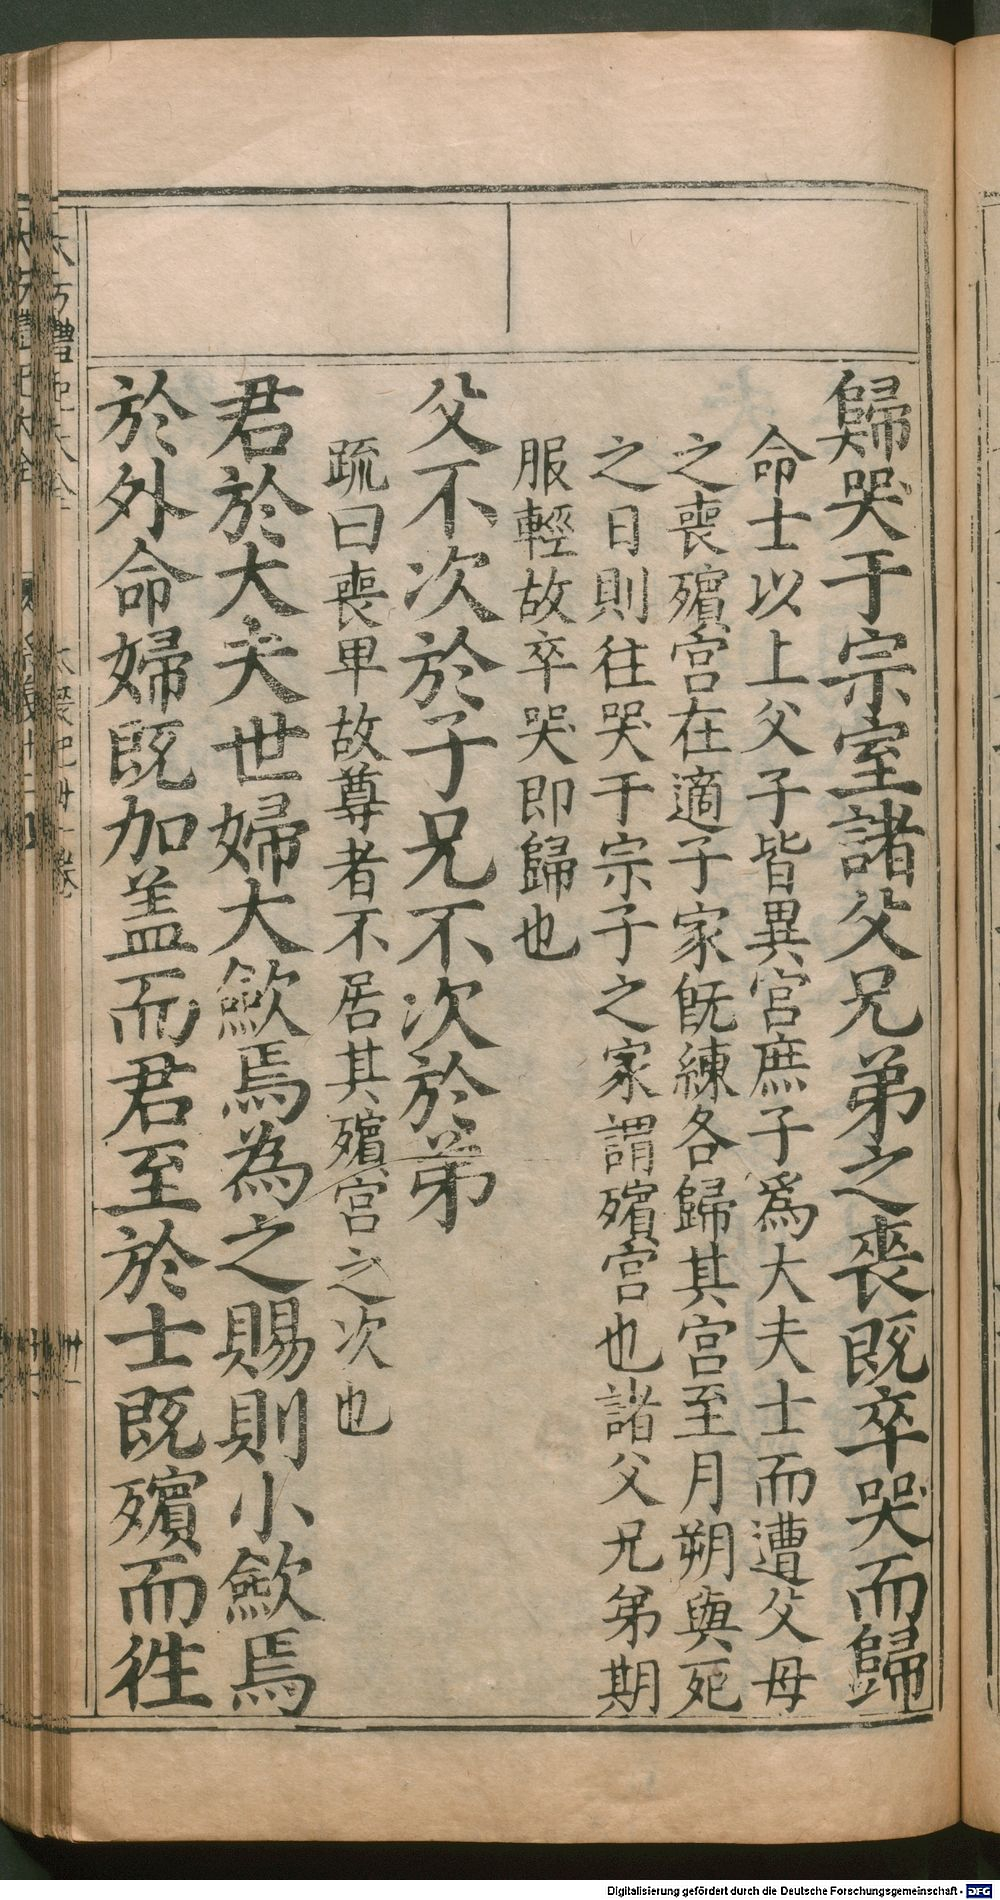 歸哭于宗室諸父兄弟之喪既卒哭而歸
命士以上父子皆異宮庶子爲大夫士而遭父母
之喪殯宮在適子家旣練各歸其宮至月朔與死
之日則往哭于宗子之家謂殯宮也諸父兄弟期
服輕故卒哭即歸也
父不次於子兄不次於弟
疏曰喪卑故尊者不居其殯宮之次也
君於大夫世婦大歛焉為之賜則小歛焉
於外命婦既加盖而君至於士既殯而徃
Digitalisierung gefördert durch die Deutsche Forschungsgemeinschaft - DFG